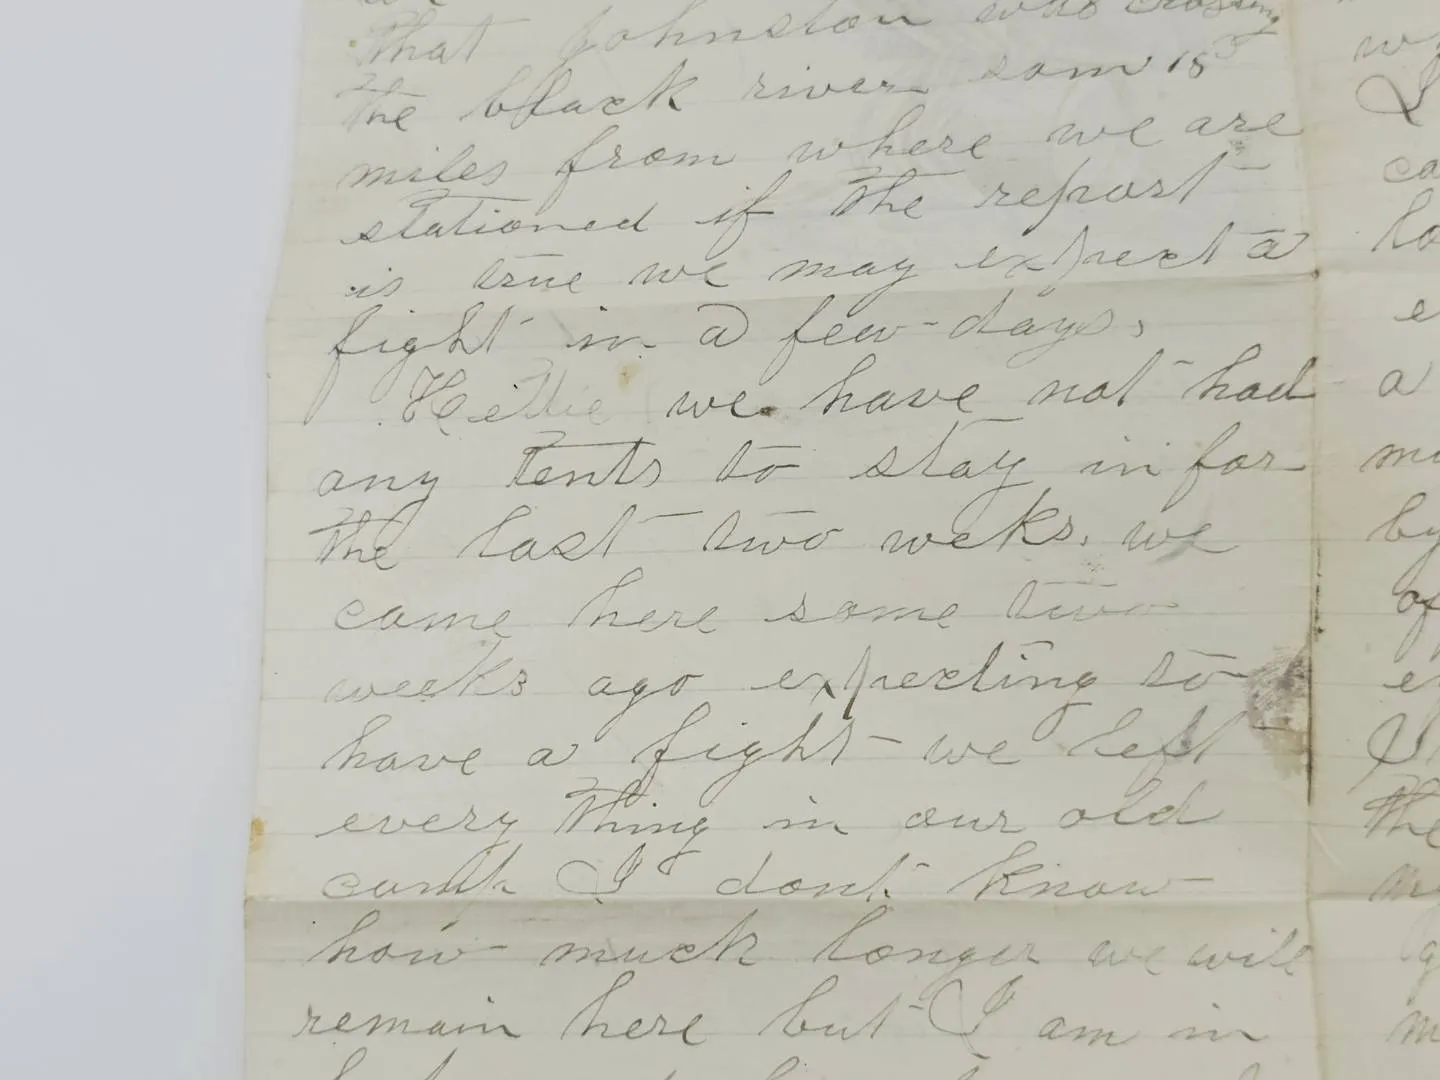 that Johnston was crossing
the black river som 15
miles from where we are
stationed if the report
is true we may expect a
fight in a few days,
Hettie we have not had
any tents to stay in for
the last two weeks. we
came here some two
weeks ago expecting to
have a fight we left
every thing in our old
camp I dont know
how much longer we will
remain here but I am in
I
ca
a
by
of
the